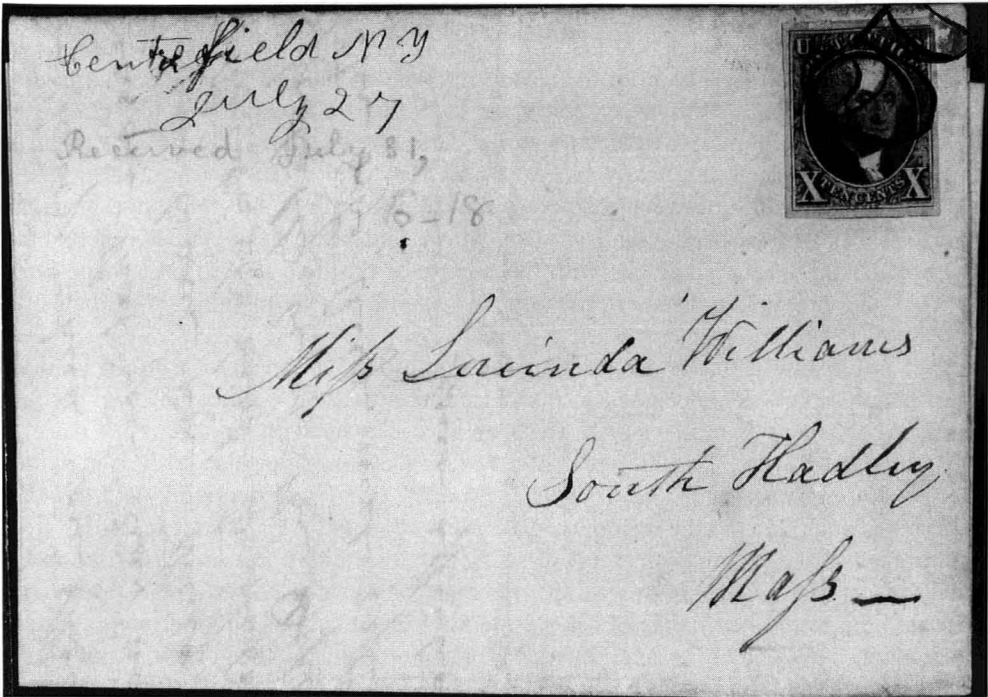 Centrefield N Y
July 27
Received July 31,
5-18
U
X TEN CENTS X
Miss Lucinda Williams
South Hadley
Mass